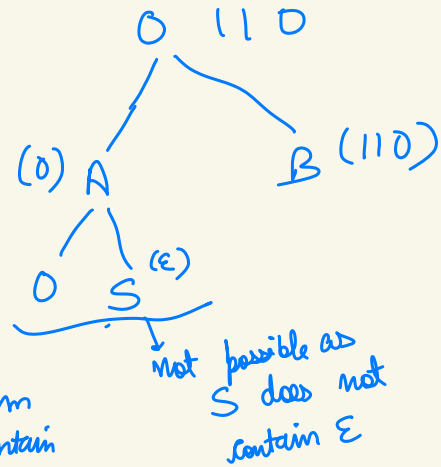 0 110
(0) A B (110)
0 S (ε)
not possible as
S does not
contain ε